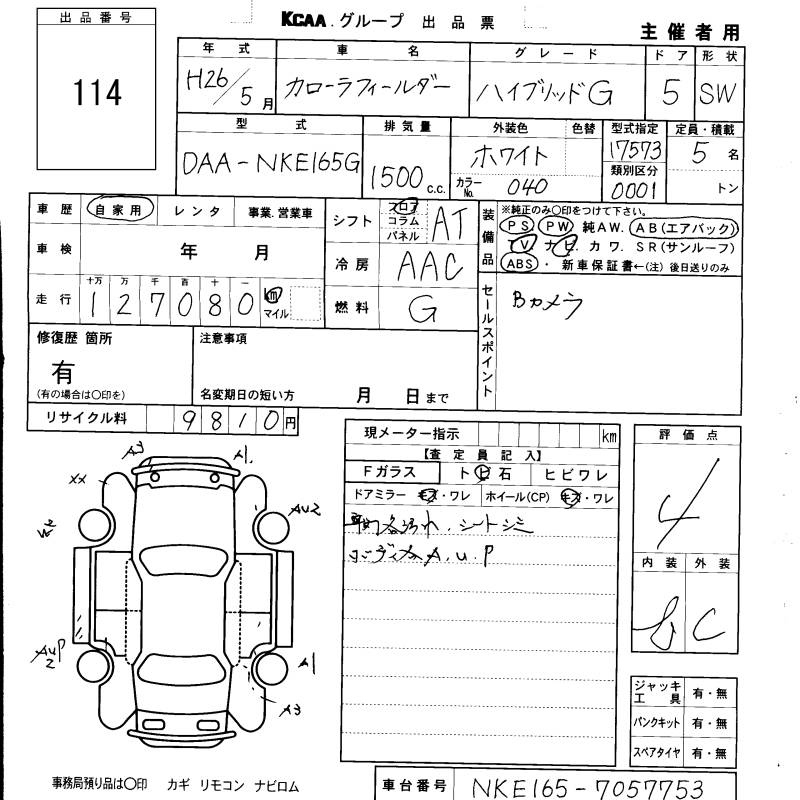 出品番号
114
KCAA.グループ 出品票
主催者用
年式 車名 グレード ドア 形状
H26/5月 カローラフィールダー ハイブリッドG 5 SW
型式 排気量 外装色 色替 型式指定 定員・積載
DAA-NKE165G 1500c.c. ホワイト 17573 5名
カラーNo. 040 類別区分 0001 トン
車歴 自家用 レンタ 事業.営業車
車検 年 月
走行 十万 万 千 百 十 一
127080 km マイル
シフト フロア コラム パネル AT
冷房 AAC
燃料 G
装備品
※純正のみ〇印をつけて下さい。
PS PW 純AW. AB(エアバック)
TV ナビ. カワ. SR(サンルーフ)
ABS・ 新車保証書←(注) 後日送りのみ
セールスポイント
Bカメラ
修復歴 箇所
有
(有の場合は〇印を)
注意事項
名変期日の短い方 月 日まで
リサイクル料 9810円
A3 A1.
XX
W2
AU2
AUP
2
A1
A3
現メーター指示 km
【査定員記入】
Fガラス トビ石 ヒビワレ
ドアミラー キズ・ワレ ホイール(CP) キズ・ワレ
シートシミ
A.U.P
評価点
4
内装 外装
C
ジャッキ 工具 有・無
パンクキット 有・無
スペアタイヤ 有・無
事務局預り品は〇印 カギ リモコン ナビロム
車台番号 NKE165-7057753